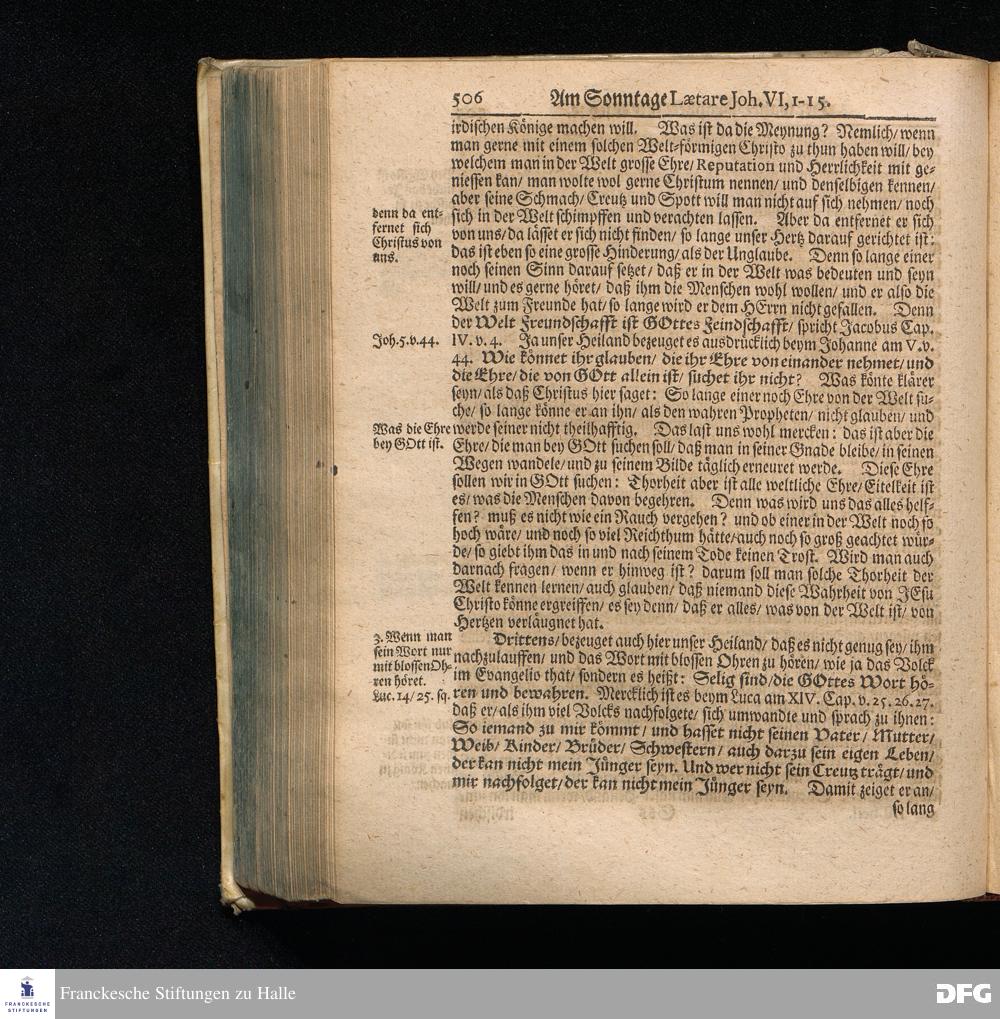 506 Am Sonntage Lætare Joh. VI, 1-15.
irdischen Könige machen will. Was ist da die Meynung? Nemlich/ wenn
man gerne mit einem solchen Welt-förmigen Christo zu thun haben will/ bey
welchem man in der Welt grosse Ehre/ Reputation und Herrlichkeit mit ge-
niessen kan/ man wolte wol gerne Christum nennen/ und denselbigen kennen/
aber seine Schmach/ Creutz und Spott will man nicht auf sich nehmen/ noch
sich in der Welt schimpffen und verachten lassen. Aber da entfernet er sich
von uns/ da lässet er sich nicht finden/ so lange unser Hertz darauf gerichtet ist:
das ist eben so eine grosse Hinderung/ als der Unglaube. Denn so lange einer
noch seinen Sinn darauf setzet/ daß er in der Welt was bedeuten und seyn
will/ und es gerne höret/ daß ihm die Menschen wohl wollen/ und er also die
Welt zum Freunde hat/ so lange wird er dem HErrn nicht gefallen. Denn
der Welt Freundschafft ist GOttes Feindschafft/ spricht Jacobus Cap.
IV. v. 4. Ja unser Heiland bezeuget es ausdrücklich beym Johanne am V. v.
44. Wie könnet ihr glauben/ die ihr Ehre von einander nehmet/ und
die Ehre/ die von GOtt allein ist/ suchet ihr nicht? Was könte klärer
seyn/ als daß Christus hier saget: So lange einer noch Ehre von der Welt su-
che/ so lange könne er an ihn/ als den wahren Propheten/ nicht glauben/ und
werde seiner nicht theilhafftig. Das last uns wohl mercken: das ist aber die
Ehre/ die man bey GOtt suchen soll/ daß man in seiner Gnade bleibe/ in seinen
Wegen wandele/ und zu seinem Bilde täglich erneuret werde. Diese Ehre
sollen wir in GOtt suchen: Thorheit aber ist alle weltliche Ehre/ Eitelkeit ist
es/ was die Menschen davon begehren. Denn was wird uns das alles helf-
fen? muß es nicht wie ein Rauch vergehen? und ob einer in der Welt noch so
hoch wäre/ und noch so viel Reichthum hätte/ auch noch so groß geachtet wür-
de/ so giebt ihm das in und nach seinem Tode keinen Trost. Wird man auch
darnach fragen/ wenn er hinweg ist? darum soll man solche Thorheit der
Welt kennen lernen/ auch glauben/ daß niemand diese Wahrheit von JEsu
Christo könne ergreiffen/ es sey denn/ daß er alles/ was von der Welt ist/ von
Hertzen verläugnet hat.
Drittens/ bezeuget auch hier unser Heiland/ daß es nicht genug sey/ ihm
nachzulauffen/ und das Wort mit blossen Ohren zu hören/ wie ja das Volck
im Evangelio that/ sondern es heißt: Selig sind/ die GOttes Wort hö-
ren und bewahren. Mercklich ist es beym Luca am XIV. Cap. v. 25. 26. 27.
daß er/ als ihm viel Volcks nachfolgete/ sich umwandte und sprach zu ihnen:
So iemand zu mir kömmt/ und hasset nicht seinen Vater/ Mutter/
Weib/ Kinder/ Brüder/ Schwestern/ auch darzu sein eigen Leben/
der kan nicht mein Jünger seyn. Und wer nicht sein Creutz trägt/ und
mir nachfolget/ der kan nicht mein Jünger seyn. Damit zeiget er an/
so lang
denn da ent-
fernet sich
Christus von
uns.
Joh. 5. v. 44.
Was die Ehre
bey GOtt ist.
3. Wenn man
sein Wort nur
mit blossen Oh-
ren höret.
Luc. 14/ 25. sq.
FRANCKESCHE
STIFTUNGEN
Franckesche Stiftungen zu Halle
DFG